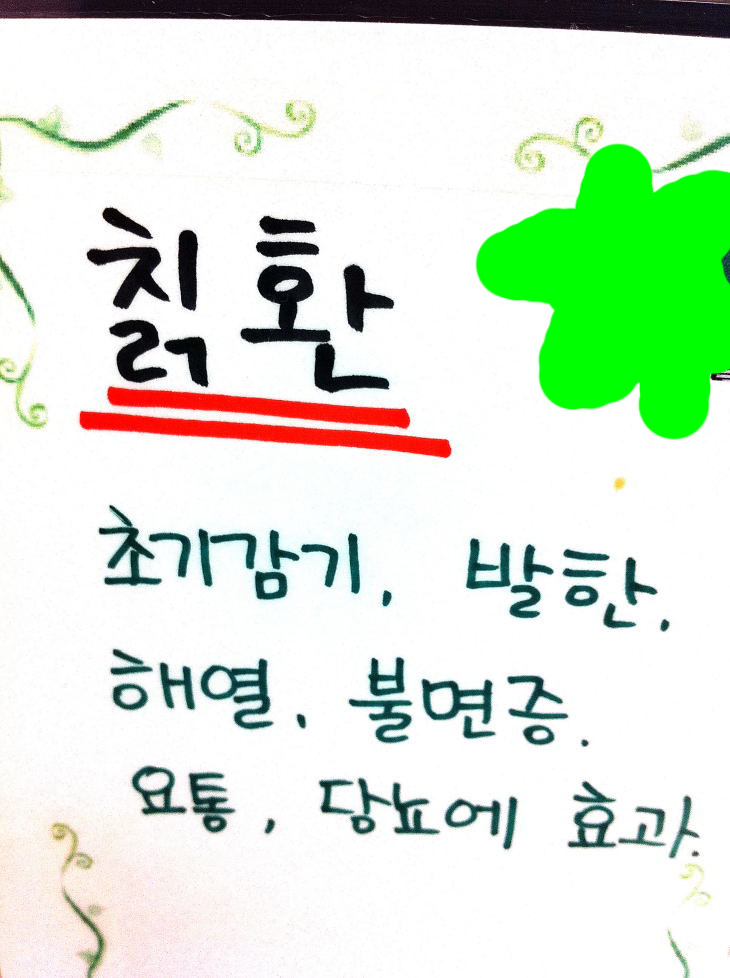 칡환
초기감기, 발한,
해열, 불면증,
요통, 당뇨에 효과.